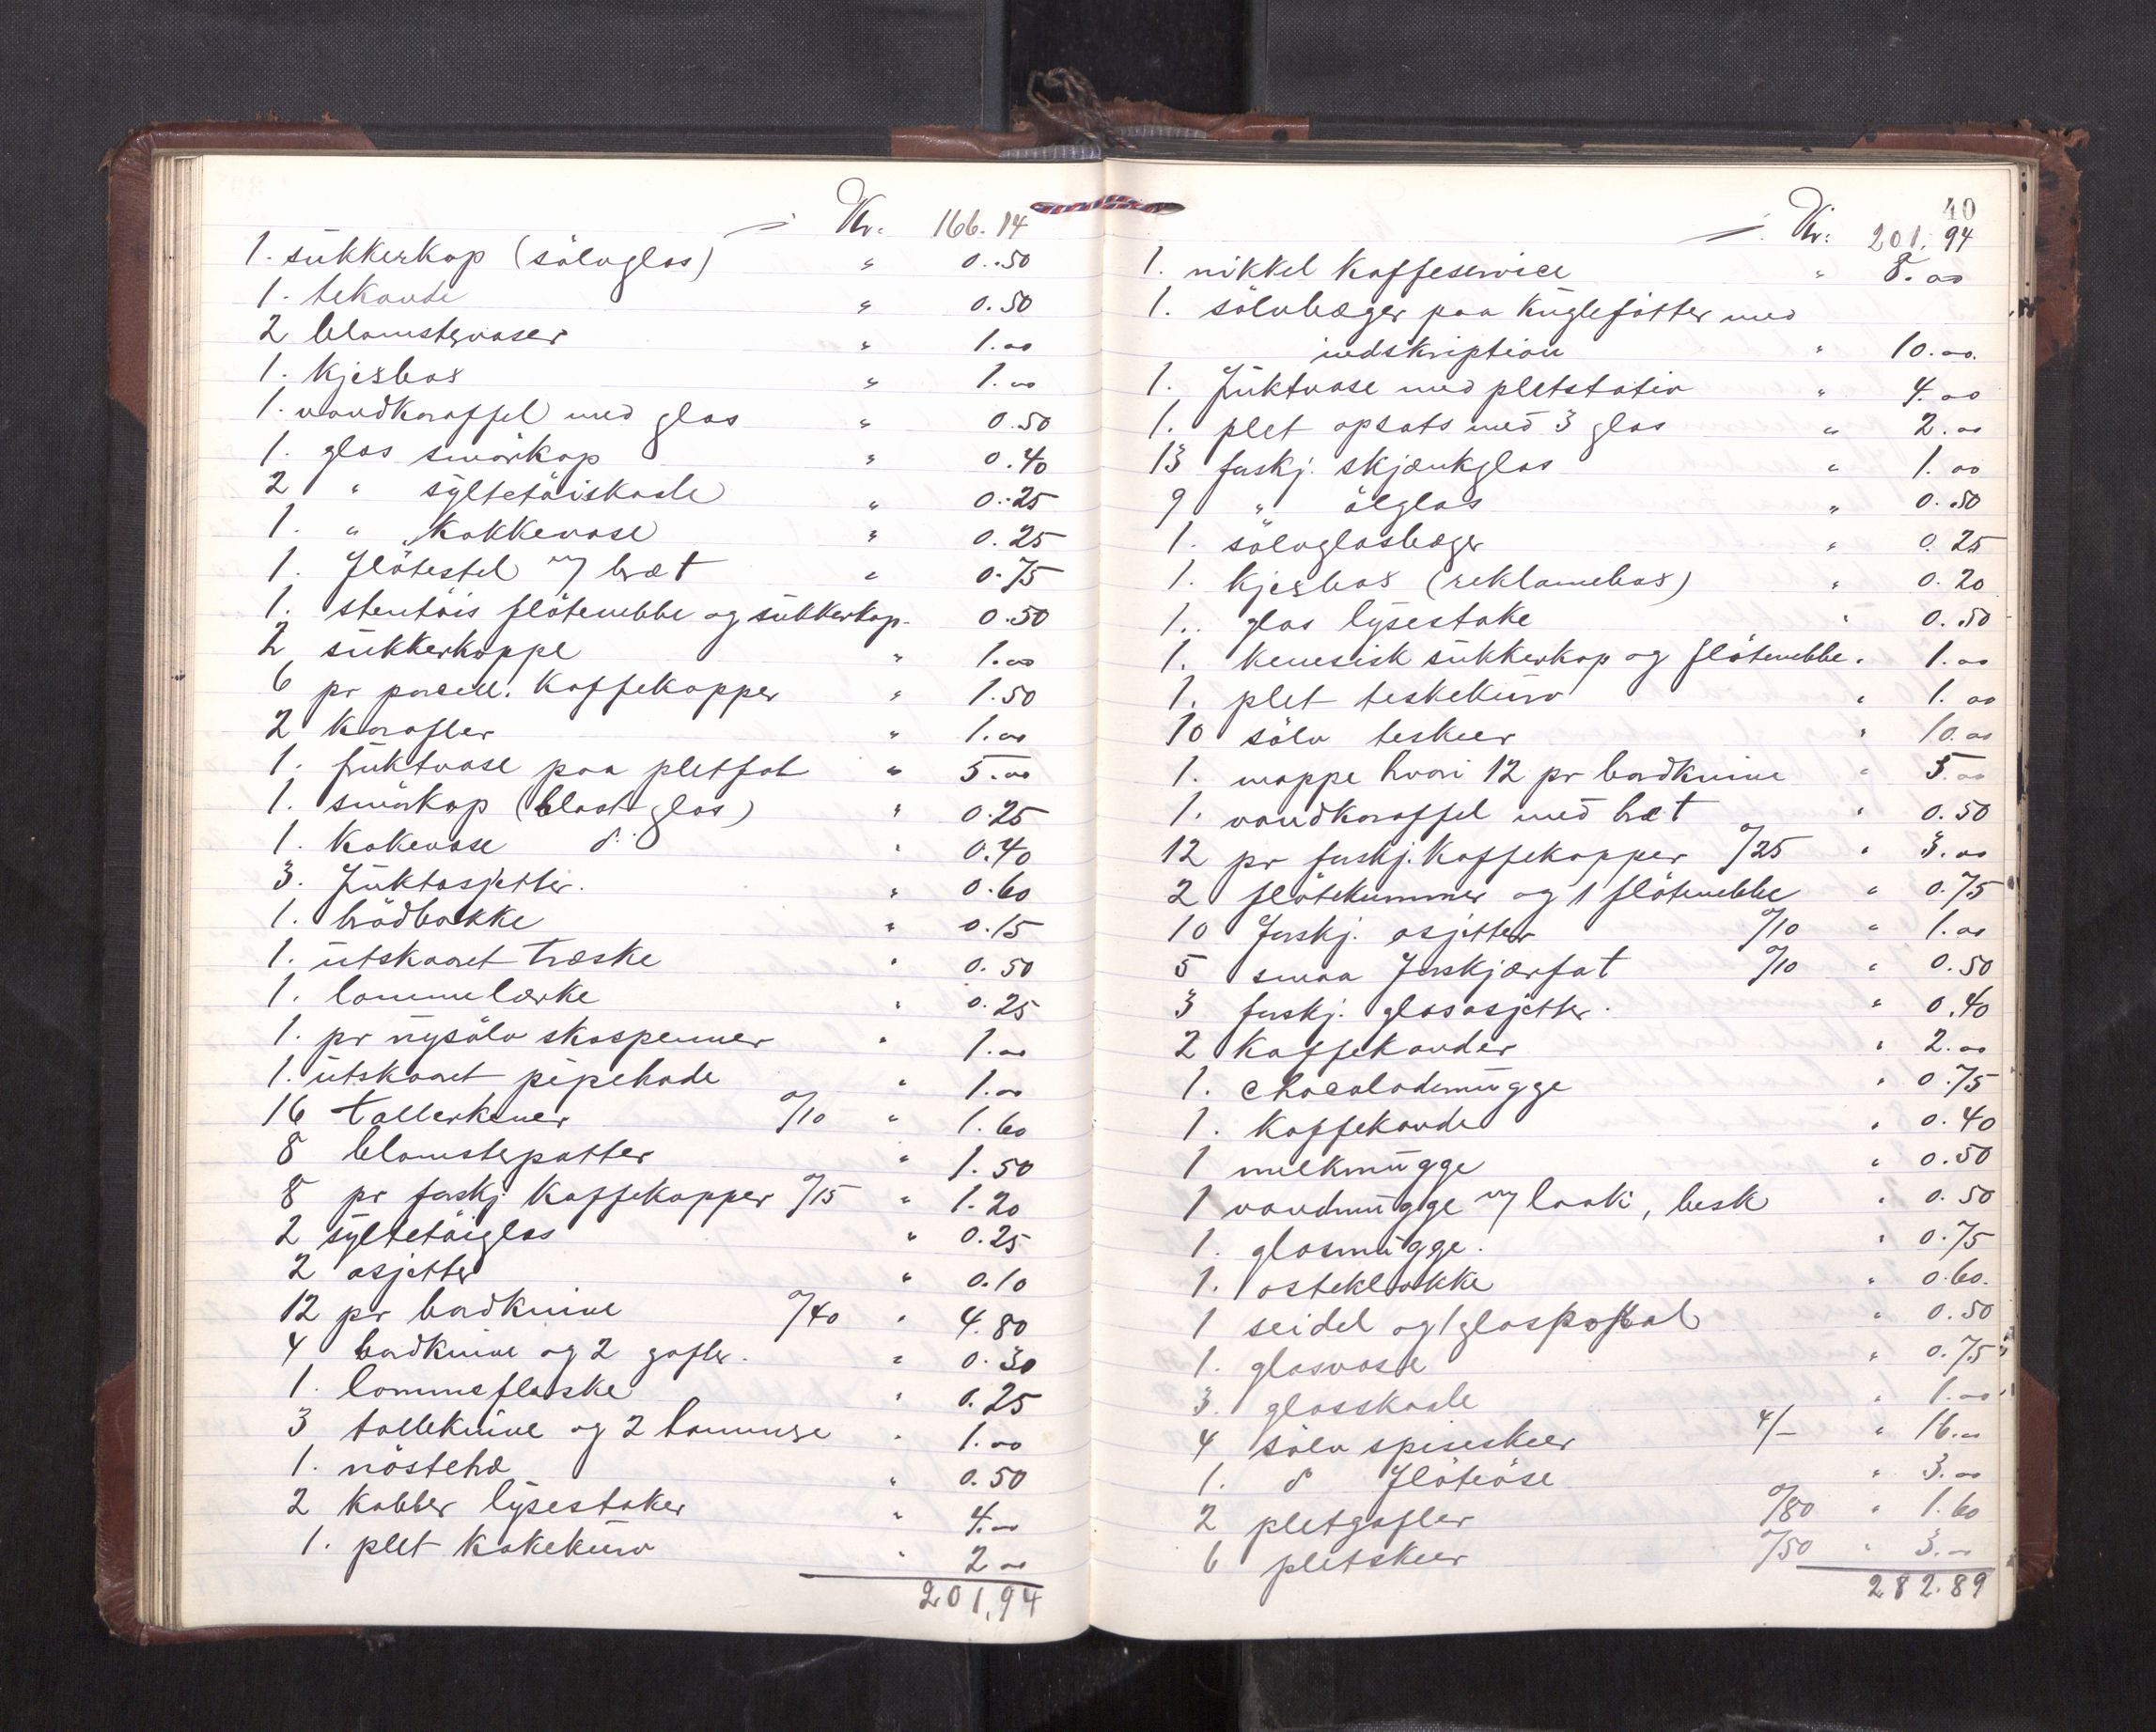 Kr. 166.14
1. sukkerkop (sölvglas) " 0.50
1. tekande " 0.50
2 blomstervaser " 1.00
1. kjeksbox " 1.00
1. vandkaraffel med glas " 0.50
1. glas smörkop " 0.40
2 " syltetöiskaale " 0.25
1. " kakkevase " 0.25
1. flötestel m/ bræt " 0.75
1. stentöis flötenebbe og sukkerkop. 0.50
2 sukkerkoppe " 1.00
6 pr porcell. kaffekopper " 1.50
2 karafler " 1.00
1. fruktvase paa pletfat " 5.00
1. smörkop (blaat glas) " 0.25
1. kakevase do " 0.40
3. fruktasjetter. " 0.60
1. brödbakke " 0.15
1. utskaaret træske " 0.50
1. lommelærke " 0.25
1. pr nysölv skospenner " 1.00
1. utskaaret pipehode " 1.00
16 tallerkener 0/10 " 1.60
8 blomsterpotter " 1.50
8 pr forskj. kaffekopper 0/15 " 1.20
2 syltetöiglas " 0.25
2 asjetter " 0.10
12 pr bordknive 0/40 " 4.80
4 bordknive og 2 gafler. " 0.30
1. lommeflaske " 0.25
3 tolleknive og 2 " 1.00
1. nöstehd " 0.50
2 kobber lysestaker " 4.00
1. plet kakekurv " 2.00
201,94
40
Kr. 201,94
1. nikkel kaffeservice " 8.00
1. sölvbæger paa kuglefötter med
indskription " 10.00.
1. fruktvase med pletstativ " 4.00
1. plet opsats med 3 glas " 2.00
13 forskj. skjænkglas " 1.00
9 " ölglas " 0.50
1. sölvglasbæger " 0.25
1. kjeksbox (reklamebox) " 0.20
1. glas lysestake " 0.50
1. kinesisk sukkerkop og flötenebbe. 1.00
1. plet teskekurv " 1.00
10 sölv teskeer " 10.00
1. mappe hvori 12 pr bordknive " 5.00
1. vandkaraffel med bræt " 0.50
12 pr forskj. kaffekopper 0/25 " 3.00
2 flötekummer og 1 flötenebbe " 0.75
10 forskj. asjetter 0/10 " 1.00
5 smaa forskjærfat 0/10 " 0.50
3 forskj. glasasjetter. " 0.40
2 kaffekander " 2.00
1. chocolademugge " 0.75
1. kaffekande " 0.40
1 melkmugge " 0.50
1 vandmugge m/ laak, besk " 0.50
1. glasmugge. " 0.75
1. osteklokke " 0.60.
1 seidel og 1 glaspokal " 0.50
1. glasvase " 0.75
3. glasskaale " 1.00
4 sölv spiseskeer 4/– " 16.00
1. do flöteöse " 3.00
2 pletgafler 0/80 " 1.60
6 pletskeer 0/50 " 3.00
282.89